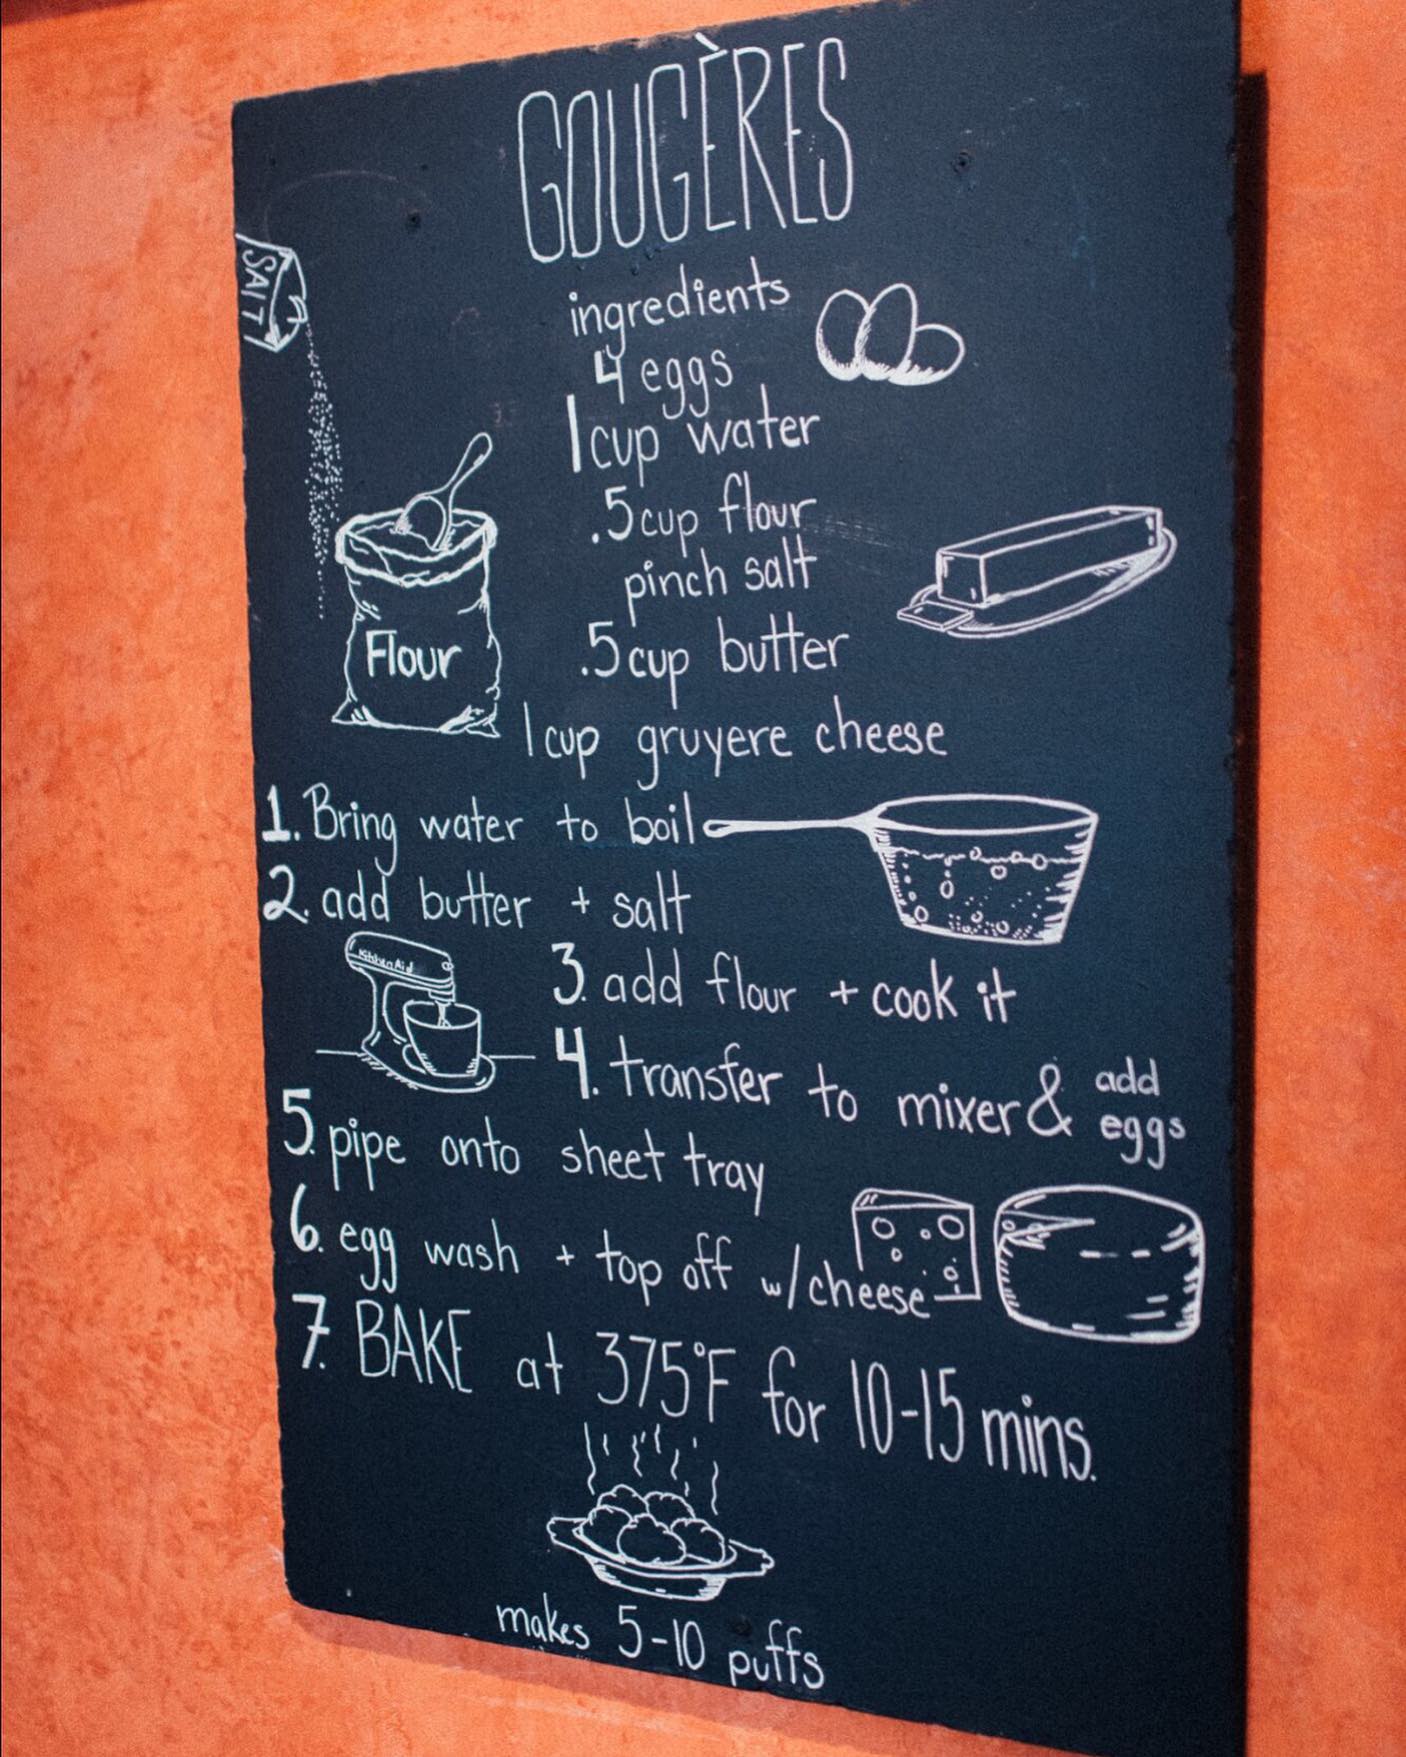 GOUGÈRES
SALT
ingredients
4 eggs
1 cup water
.5 cup flour
pinch salt
Flour
.5 cup butter
1 cup gruyere cheese
1. Bring water to boil
2. add butter + salt
KitchenAid
3. add flour + cook it
4. transfer to mixer & add eggs
5. pipe onto sheet tray
6. egg wash + top off w/cheese
7. BAKE at 375°F for 10-15 mins.
makes 5-10 puffs